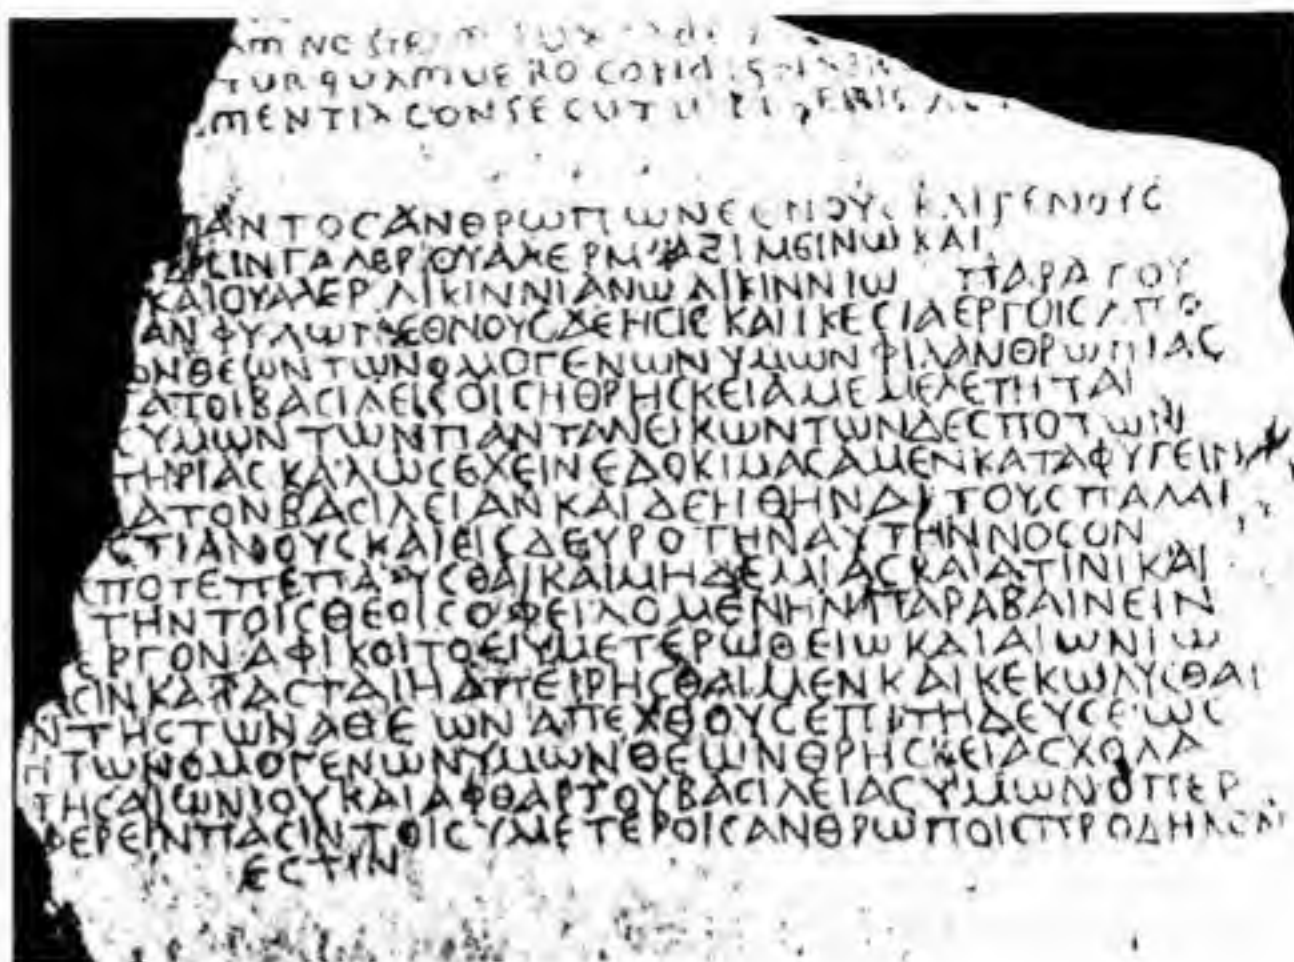 TURQUAMUERO
MENTIACONSECUTU
ΠΑΝΤΟϹΑΝΘΡωΠωΝΕΘΝΟΥϹΚΑΙΓΕΝΟΥϹ
ϹΙΝΓΑΛΕΡΟΥΑΛΕΡΜΑΞΙΜΕΙΝωΚΑΙ
ΚΑΙΟΥΑΛΕΡΛΙΚΙΝΝΙΑΝωΛΙΚΙΝΝΙωΠΑΡΑΤΟΥ
ΑΝΦΥΛωΝΕΘΝΟΥϹΔΕΗϹΙϹΚΑΙΙΚΕϹΙΑΕΡΓΟΙϹΑΠΟ
ωΝΘΕωΝΤωΝΟΜΟΓΕΝωΝΥΜωΝΦΙΛΑΝΘΡωΠΙΑϹ
ΑΤΟΙΒΑϹΙΛΕΙϹΟΙϹΗΘΡΗϹΚΕΙΑΜΕΜΕΛΕΤΗΤΑΙ
ϹΥΜωΝΤωΝΠΑΝΤΑΝΕΙΚωΝΤωΝΔΕϹΠΟΤωΝ
ΤΗΡΙΑϹΚΑΛωϹΕΧΕΙΝΕΔΟΚΙΜΑϹΑΜΕΝΚΑΤΑΦΥΓΕΙΝ
ΑΤΟΝΒΑϹΙΛΕΙΑΝΚΑΙΔΕΗΘΗΝΑΙΤΟΥϹΠΑΛΑΙ
ϹΤΙΑΝΟΥϹΚΑΙΕΙϹΔΕΥΡΟΤΗΝΑΥΤΗΝΝΟϹΟΝ
ΠΟΤΕΠΕΠΑΥϹΘΑΙΚΑΙΜΗΔΕΜΙΑϹΚΑΙΑΤΙΝΙΚΑΙ
ΤΗΝΤΟΙϹΘΕΟΙϹΟΦΕΙΛΟΜΕΝΗΝΠΑΡΑΒΑΙΝΕΙΝ
ΕΡΓΟΝΑΦΙΚΟΙΤΟΕΙΥΜΕΤΕΡωΘΕΙωΚΑΙΑΙωΝΙω
ϹΙΝΚΑΤΑϹΤΑΙΗΑΠΕΙΡΗϹΘΑΙΜΕΝΚΑΙΚΕΚωΛΥϹΘΑΙ
ΝΤΗϹΤωΝΑΘΕωΝΑΠΕΧΘΟΥϹΕΠΙΤΗΔΕΥϹΕωϹ
ΤωΝΟΜΟΓΕΝωΝΥΜωΝΘΕωΝΘΡΗϹΚΕΙΑϹΧΟΛΑ
ΤΗϹΑΙωΝΙΟΥΚΑΙΑΦΘΑΡΤΟΥΒΑϹΙΛΕΙΑϹΥΜωΝΟΠΕΡ
ΦΕΡΕΙΝΠΑϹΙΝΤΟΙϹΥΜΕΤΕΡΟΙϹΑΝΘΡωΠΟΙϹΠΡΟΔΗΛΟΝ
ΕϹΤΙΝ